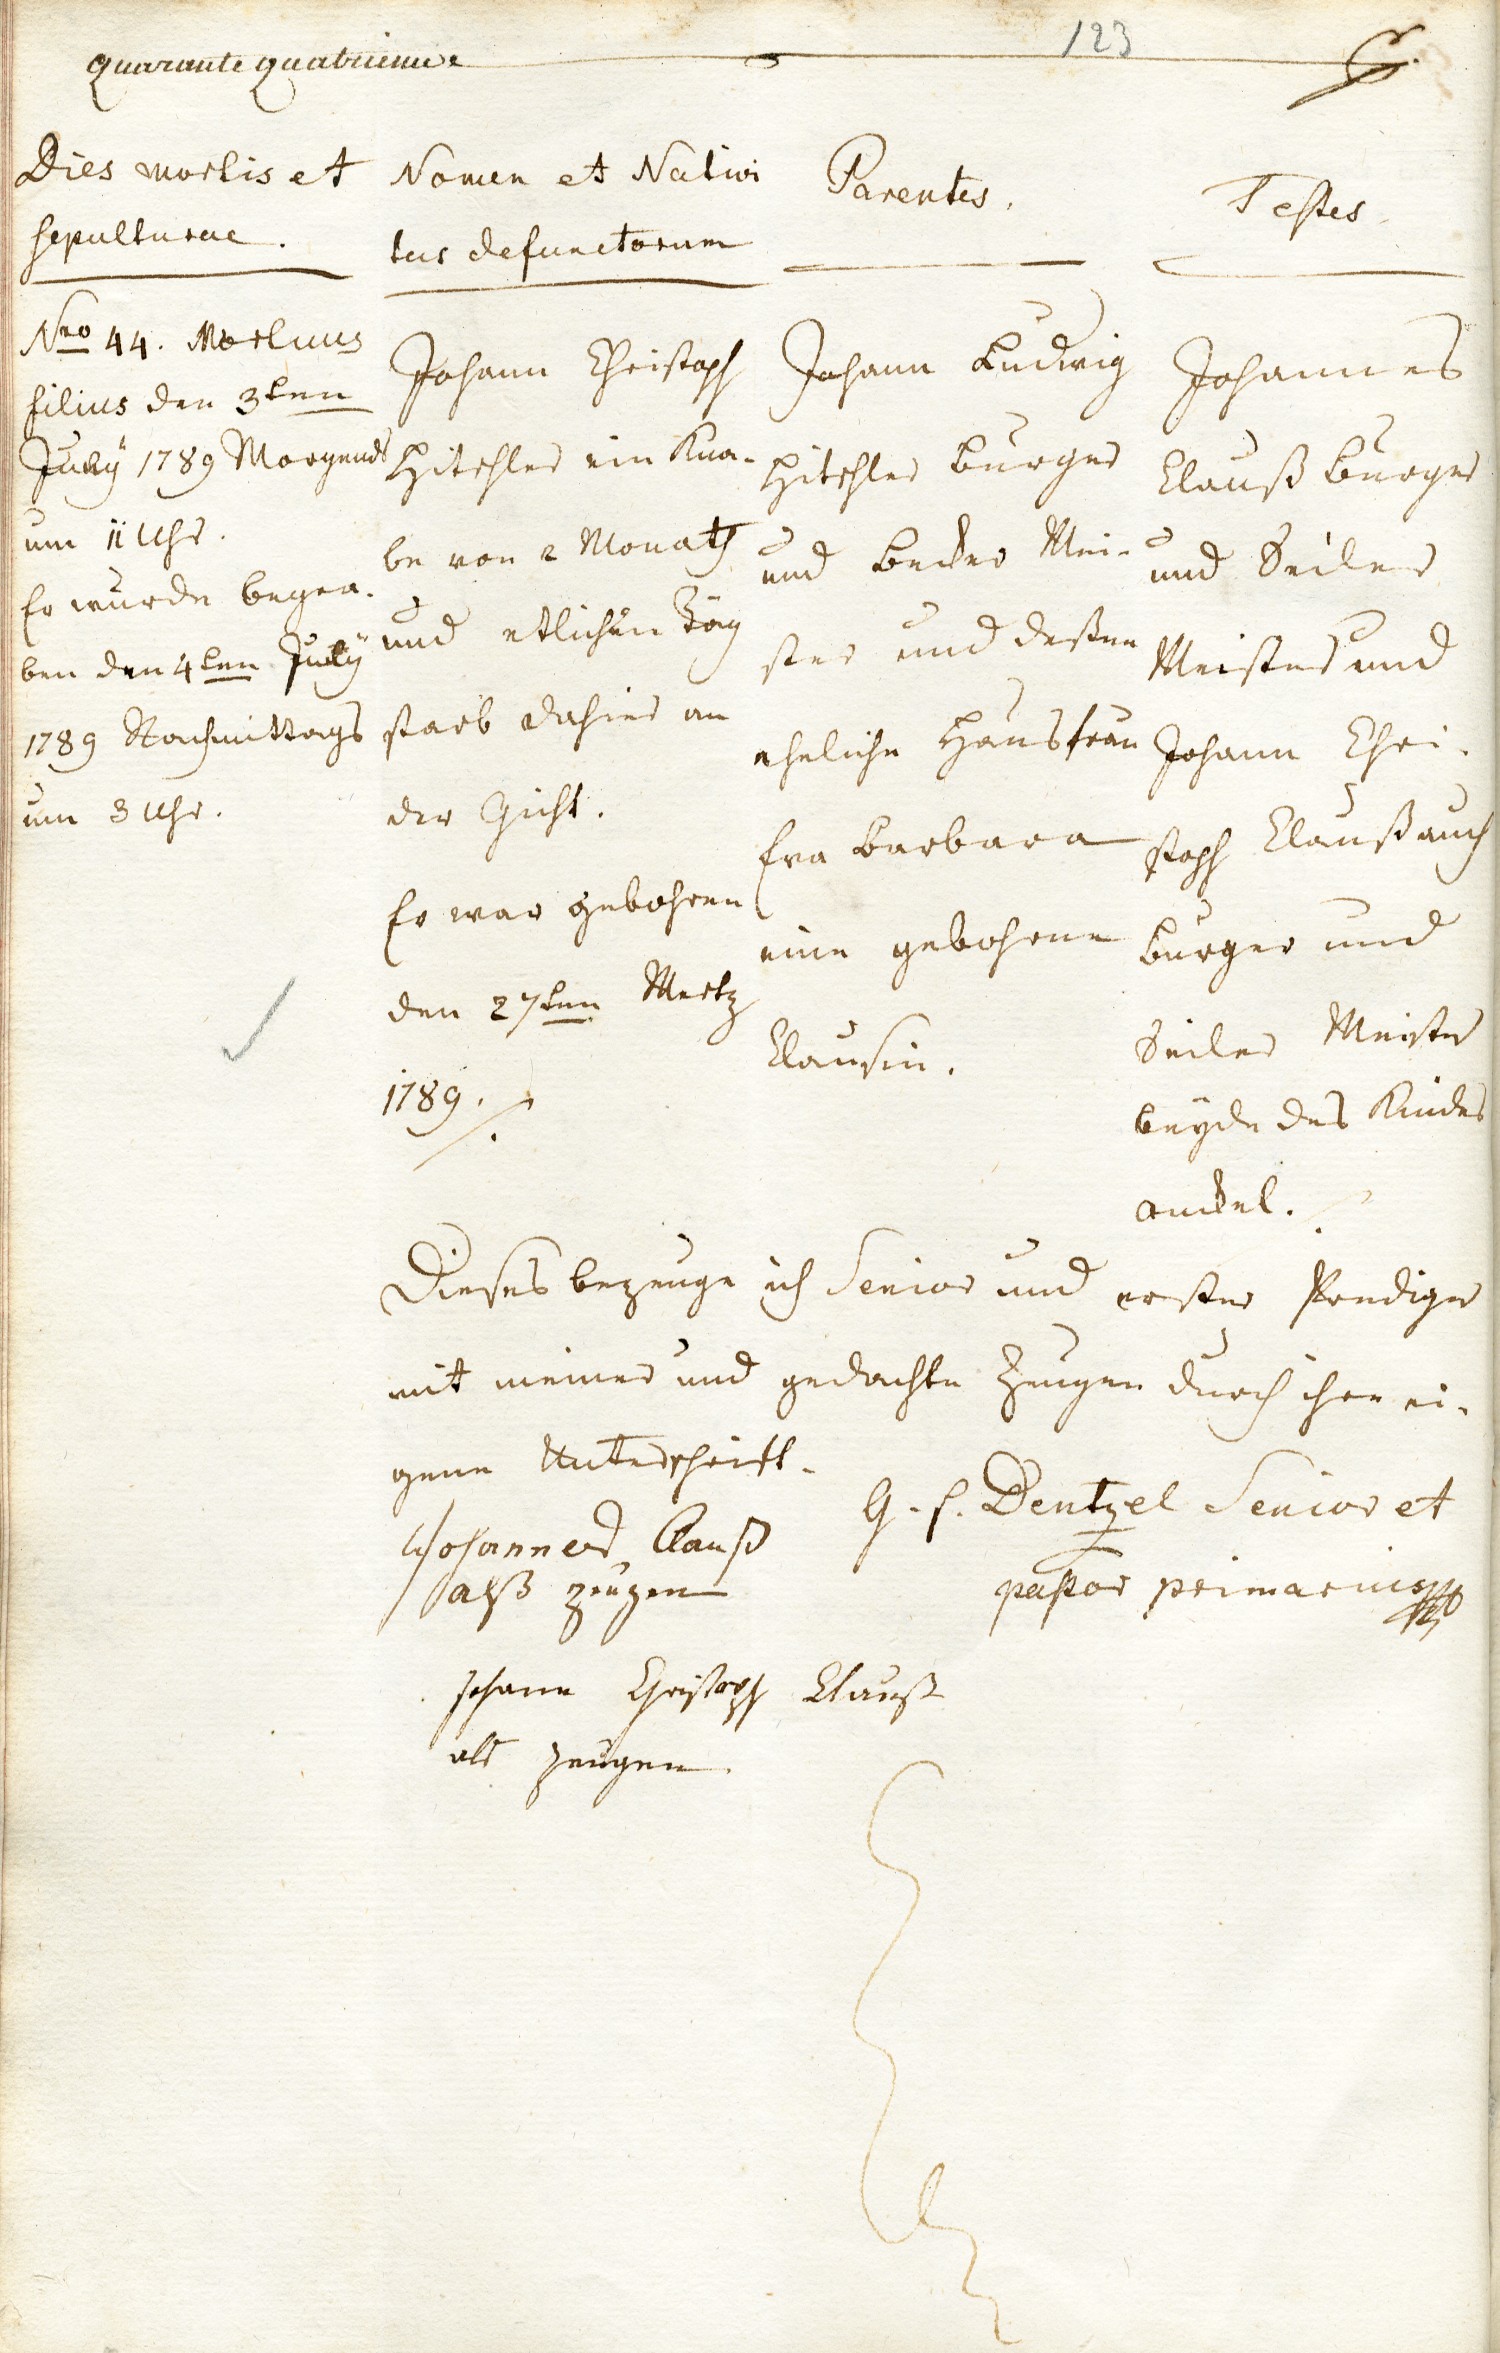 quarante quatrieme
123
Dies mortis et
sepulturae.
Nro 44. Mortuus
filius den 3ten
July 1789 Morgends
um 11 Uhr.
Er wurde begra-
ben den 4ten July
1789 Nachmittags
um 3 Uhr.
Nomen et Nativi
tas defunctorum
Johann Christoph
Hitschler ein Kna-
be von 2 Monath
und etlichen Tag
starb dahier an
der Gicht.
Er war gebohren
den 27ten Mertz
1789.
Parentes.
Johann Ludwig
Hitschler burger
und becker Mei-
ster und deßen
eheliche Hausfrau
Eva barbara
eine gebohrne
Clausin.
Testes.
Johannes
Clauß burger
und Seiler
Meister und
Johann Chri-
stoph Clauß auch
burger und
Seiler Meister
beyde des Kindes
onckel.
Dieses bezeuge ich Senior und erster Prediger
mit meiner und gedachte Zeugen durch ihre ei-
gene Unterschrift.
G. f. Dentzel Senior et
pastor primarius
Johannes Clauß
alß zeugen
Johann Christoph Clauß
als zeugen